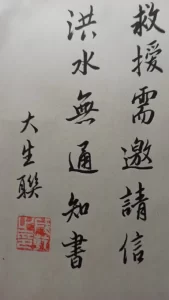 救援需邀請信
洪水無通知書
大生聯